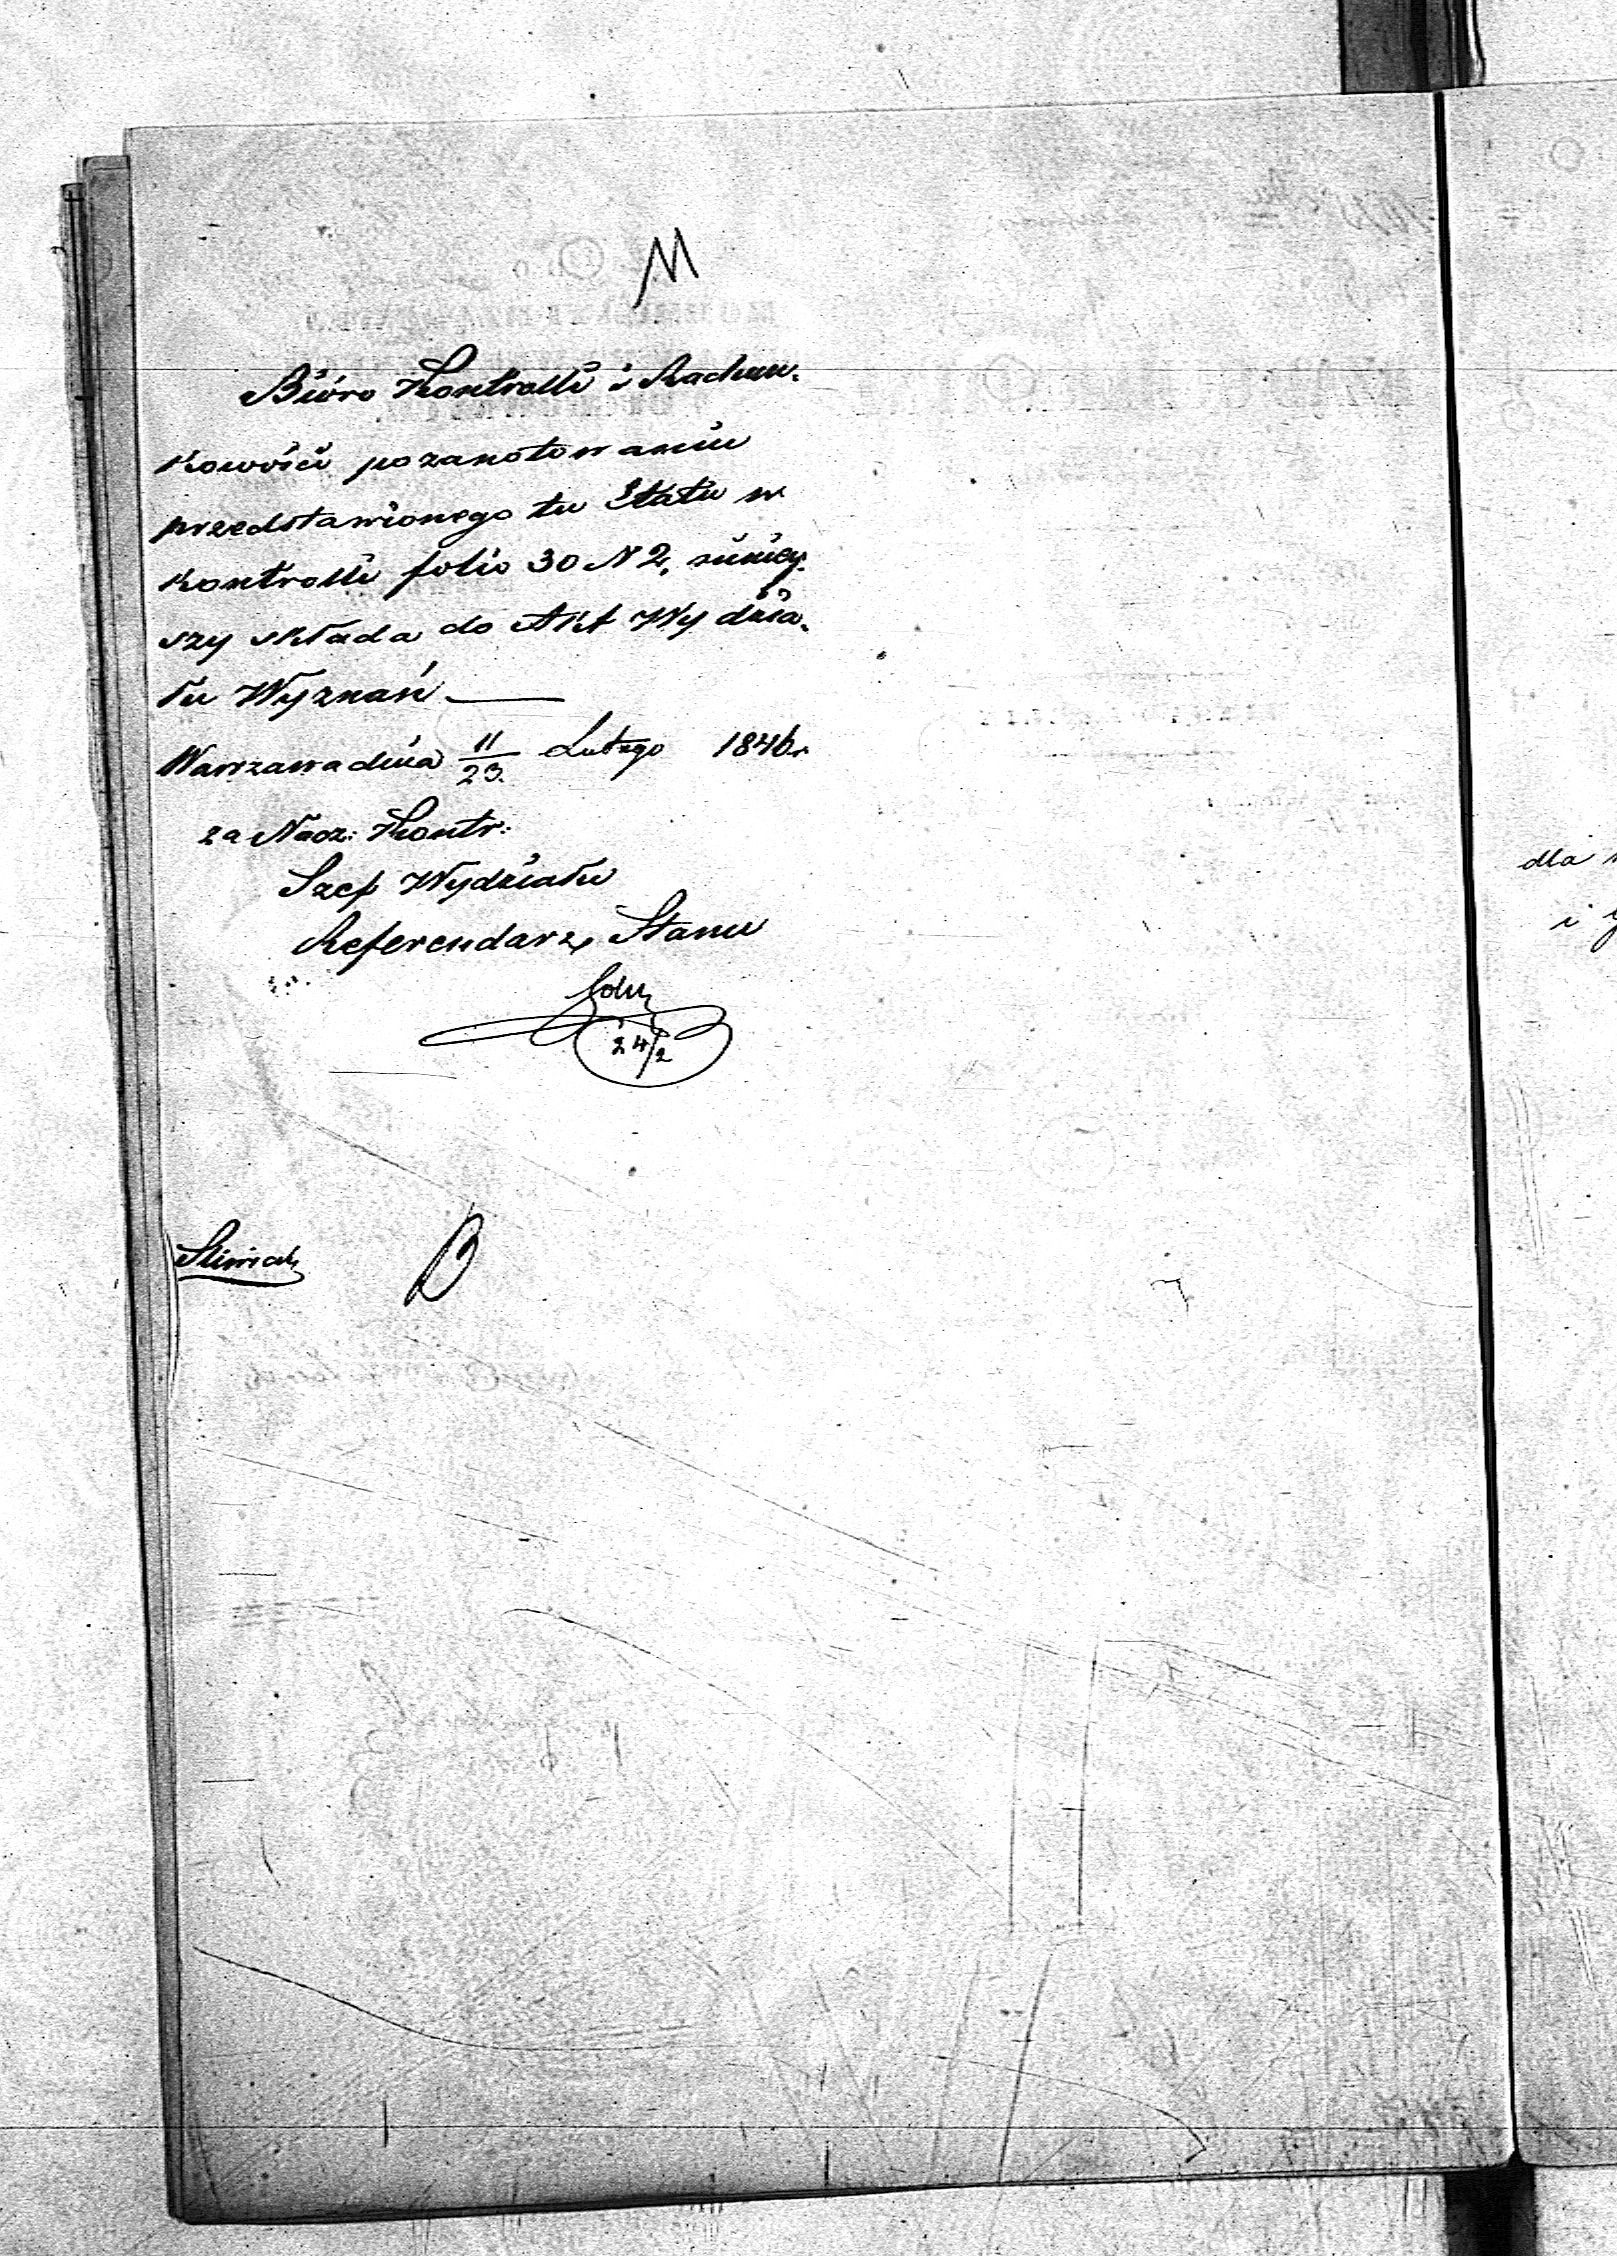 M
Bióro Kontrolli i Rachun-
kowości po zanotowaniu
przedstawionego tu Etatu w
Kontrolli folio 30 N 2, niniey-
szy składa do Akt Wydzia-
łu Wyznań
Warszawa dnia 11/23 Lutego 1846 r.
za Nacz: Kontr:
Szef Wydziału
Referendarz Stanu
24/2
B
dla
i